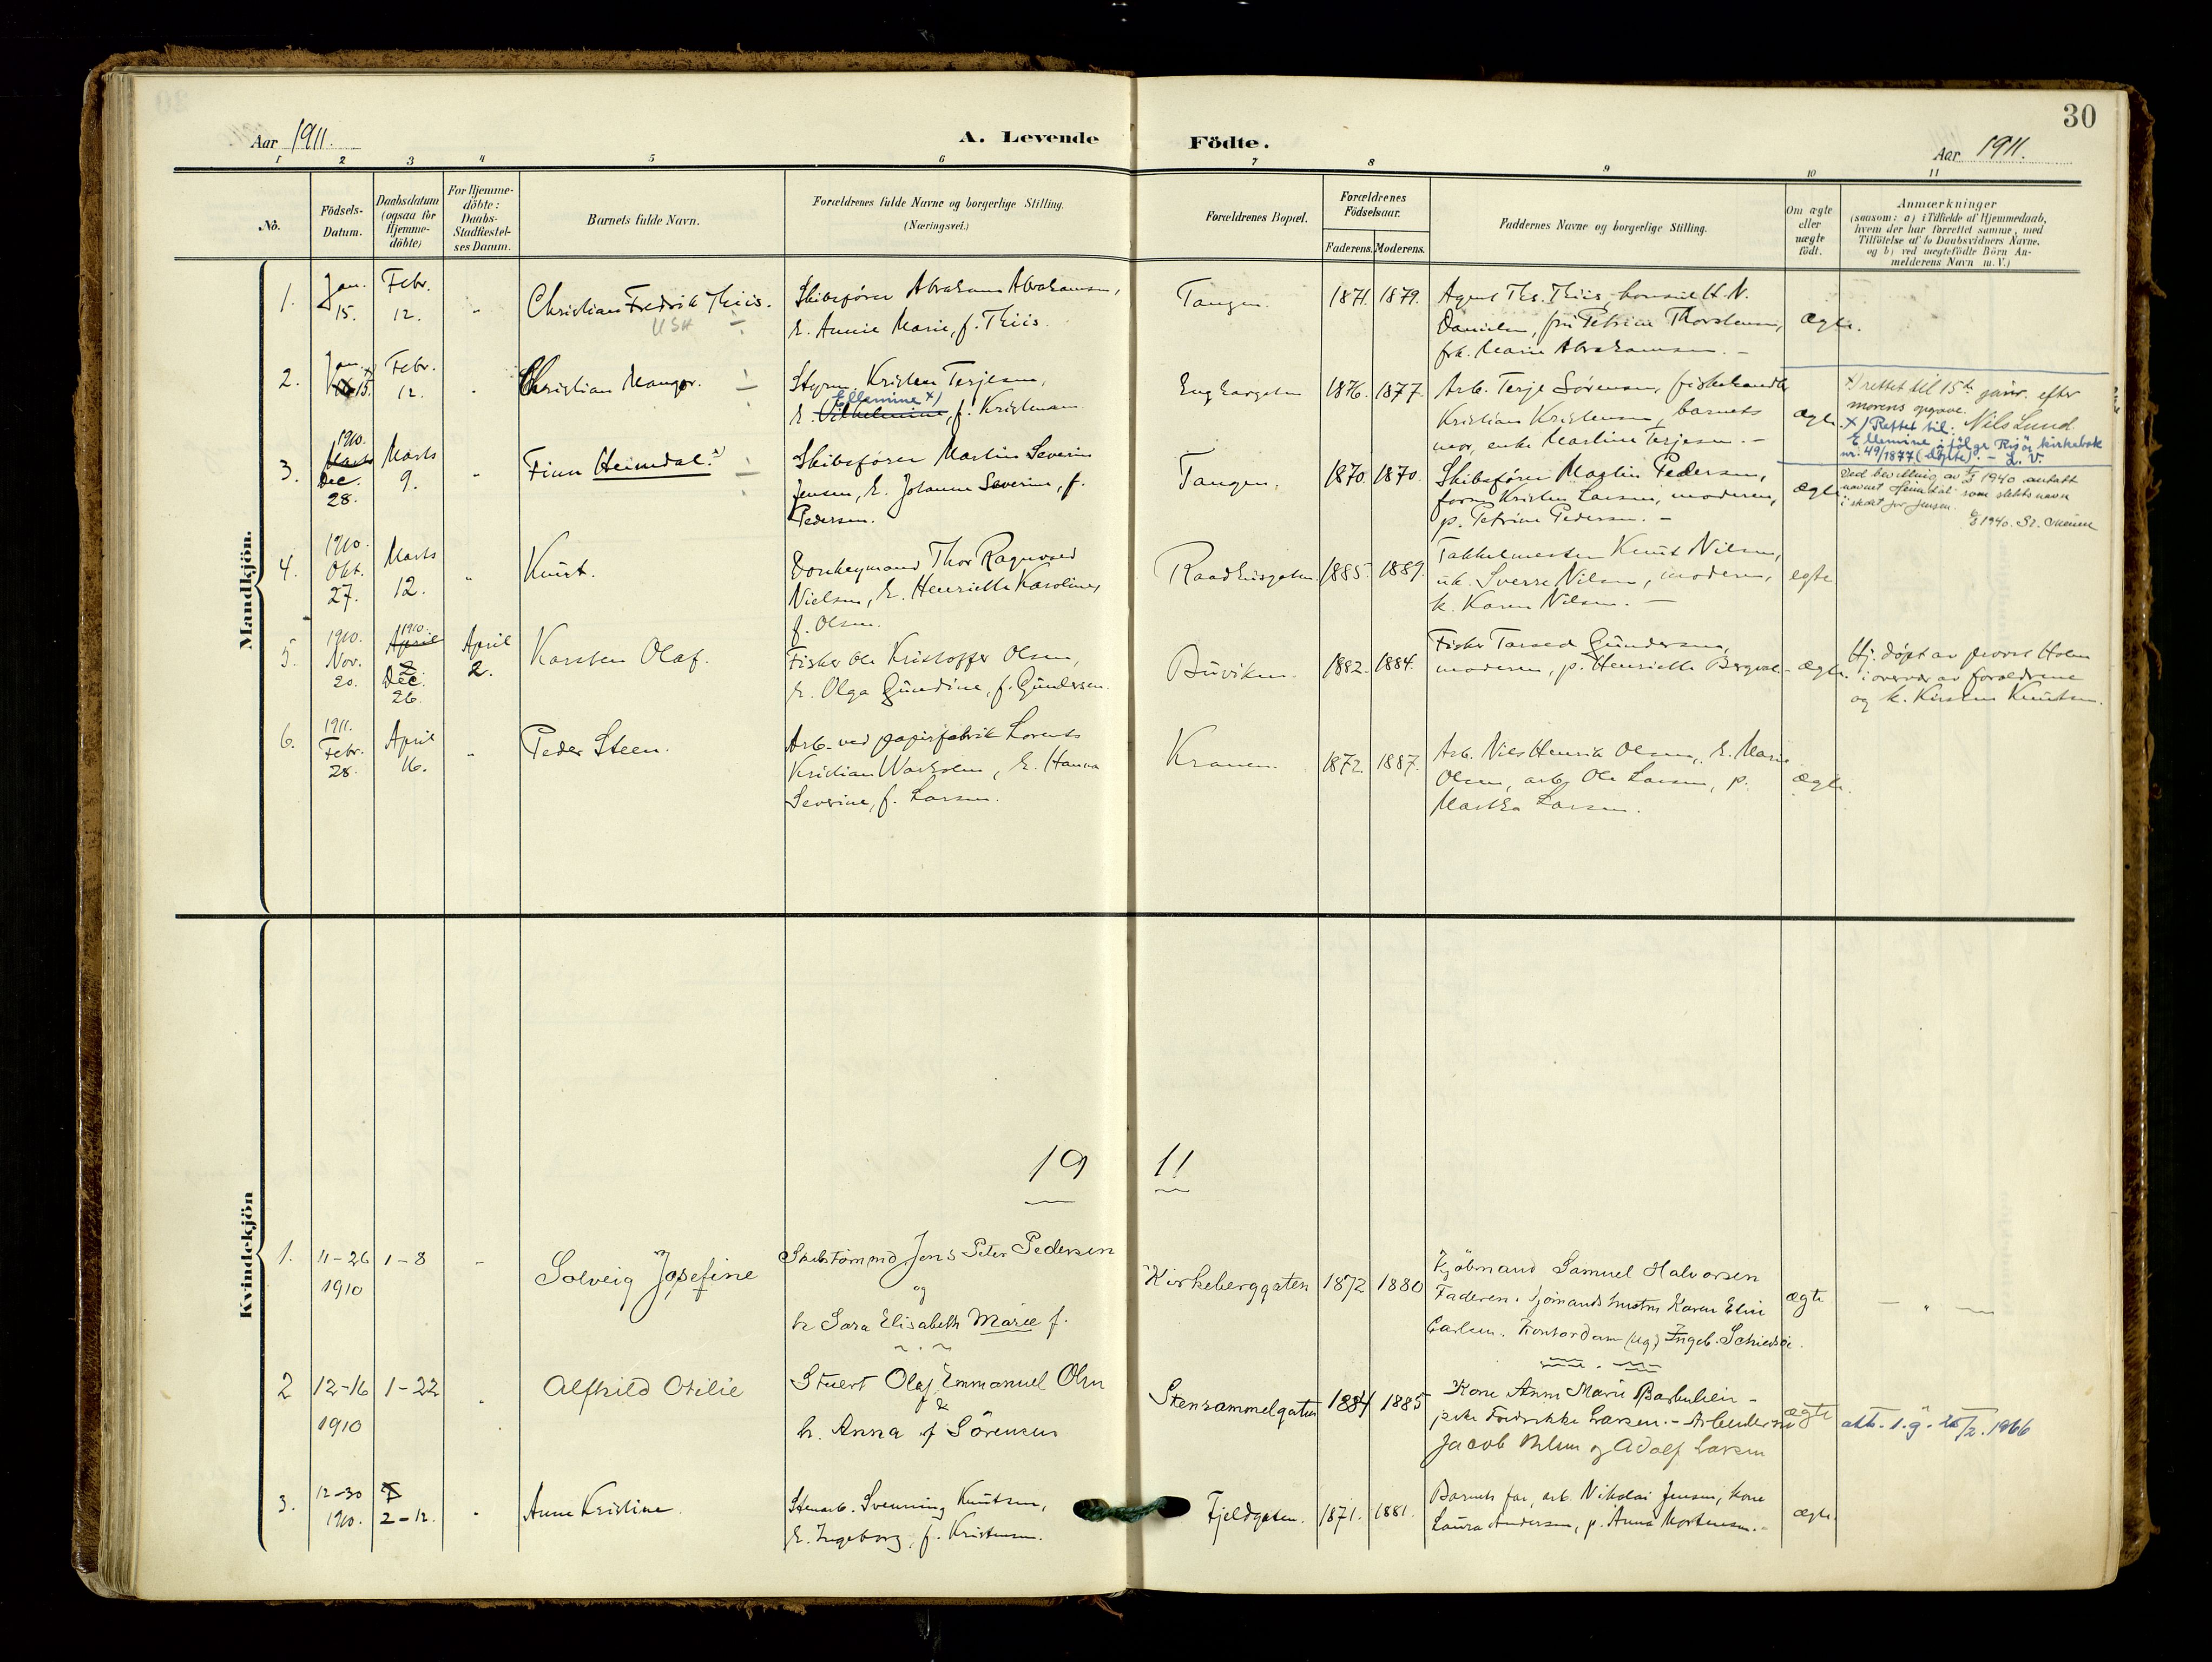 30
Aar 1911.
A. Levende Födte.
Aar 1911.
1 2 3 4 5 6 7 8 9 10 11
No.
Födsels-
Datum.
Daabsdatum
(ogsaa for
Hjemme-
döbte)
For Hjemme-
döbte:
Daabs-
Stadfæstel-
ses Datum.
Barnets fulde Navn.
Forældrenes fulde Navne og borgerlige Stilling.
(Næringsvei.)
Forældrenes Bopæl.
Forældrenes
Födselsaar.
Faderens. Moderens.
Faddernes Navne og borgerlige Stilling.
Om ægte
eller
uægte
födt.
Anmærkninger
(saasom: a) i Tilfælde af Hjemmedaab,
hvem der har forrettet samme, med
Tilföielse af to Daabsvidners Navne.
og b) ved uægtefödte Börn An-
melderens Navn m. V.)
Mandkjön.
1.
Jan.
15.
Febr.
12.
"
Christian Fredrik Thiis.
USA
Skibsfører Abraham Abrahamsen,
h. Annie Marie, f. Thiis.
Tangen.
1871. 1879.
Agent Ths. Thiis, konsul H. N.
Danielsen, fru Petrine Thorstensen,
frk. Marie Abrahamsen. -
ægte.
2.
Jan. x)
16 15.
Febr.
12.
"
Christian Mangor.
Styrm. Kristen Terjesen,
Ellemine x)
h. Vilhelmine, f. Kristensen
Enghavgaten
1876. 1877.
Arb. Terje Sørensen, fiskehandler
Kristian Kristensen, barnets
mor, enke Martine Terjesen. -
ægte.
x) rettet til 15de januar. efter
morens opgave.
Nils Lund
x) Rettet til:
Ellemine ifölge Risør kirkebok
nr. 49/1877 (döpte). - L. V.
3.
1910.
Marts
Dec.
28.
Marts
9.
"
Finn Heimdal. x)
Skibsfører Martin Severin
Jensen, h. Johanne Severine, f.
Pedersen.
Tangen.
1870. 1870.
Skibsfører Martin Pedersen,
Kristen Larsen, moderen,
p. Petrine Pedersen. -
ægte
Ved bevilling av 1940 antatt
navnet Heimdal som slektsnavn
i stedet for Jensen.
1940.
4.
1910.
Okt.
27.
Marts
12.
"
Knut.
Donkeymand Thor Ragnvald
Nielsen, h. Henriette Karoline,
f. Olsen.
Raadhusgaten
1885. 1889.
Takkelmester Knut Nilsen,
uk. Sverre Nilsen, moderen,
k. Karen Nilsen. -
egte
5.
1910.
Nov.
20.
1910.
April
2
Dec.
26.
April
2.
Karsten Olaf.
Fisker Ole Kristoffer Olsen,
h. Olga Gundine, f. Gundersen.
Buviken.
1882. 1884.
Fisker Tarald Gundersen,
moderen, p. Henriette Bergvald -
ægte.
Hj. døpt av provst Holm
i overvær av forældrene
og k. Kirsten Knutsen.
6.
1911.
Febr.
28.
April
16.
"
Peder Steen.
Arb. ved papirfabrik Lorents
Kristian Warholm, h. Hanna
Severine, f. Larsen.
Kranen.
1872. 1887.
Arb. Nils Henrik Olsen, h. Marie
Olsen, arb. Ole Larsen, p.
Martha Larsen.
ægte.
Kvindekjön
19 11
1.
11-26
1910
1-8
"
Solveig Josefine
Skibstømmd Jens Peter Pedersen
og
h Sara Elisabeth Marie f.
Kirkeberggaten
1872 1880
Kjöbmand Samuel Halvorsen
Faderen. Sjömandshustru Karen Elise
Carlsen. Kontordam (ug) Ingeb.
ægte
— " —
2
12-16
1910
1-22
"
Alfhild Otilie
Stuert Olaf Emmanuel Olsen
&
h. Anna f Sörensen
Stensammelgaten
1884 1885
Kone Anne Marie -
pike Fredrikke Larsen. - Arbeiderne
Jacob Nilsen og Adolf Larsen
ægte
att. 1.g. 1966
3.
12-30
1910.
2-12.
"
Anne Kristine.
Stenarb. Svenning Knutsen,
h. Ingeborg, f. Kristensen.
Fjeldgaten.
1871. 1881.
Barnets far, arb. Nikolai Jensen, kone
Laura Andersen, p. Anna Mortensen. -
ægte.